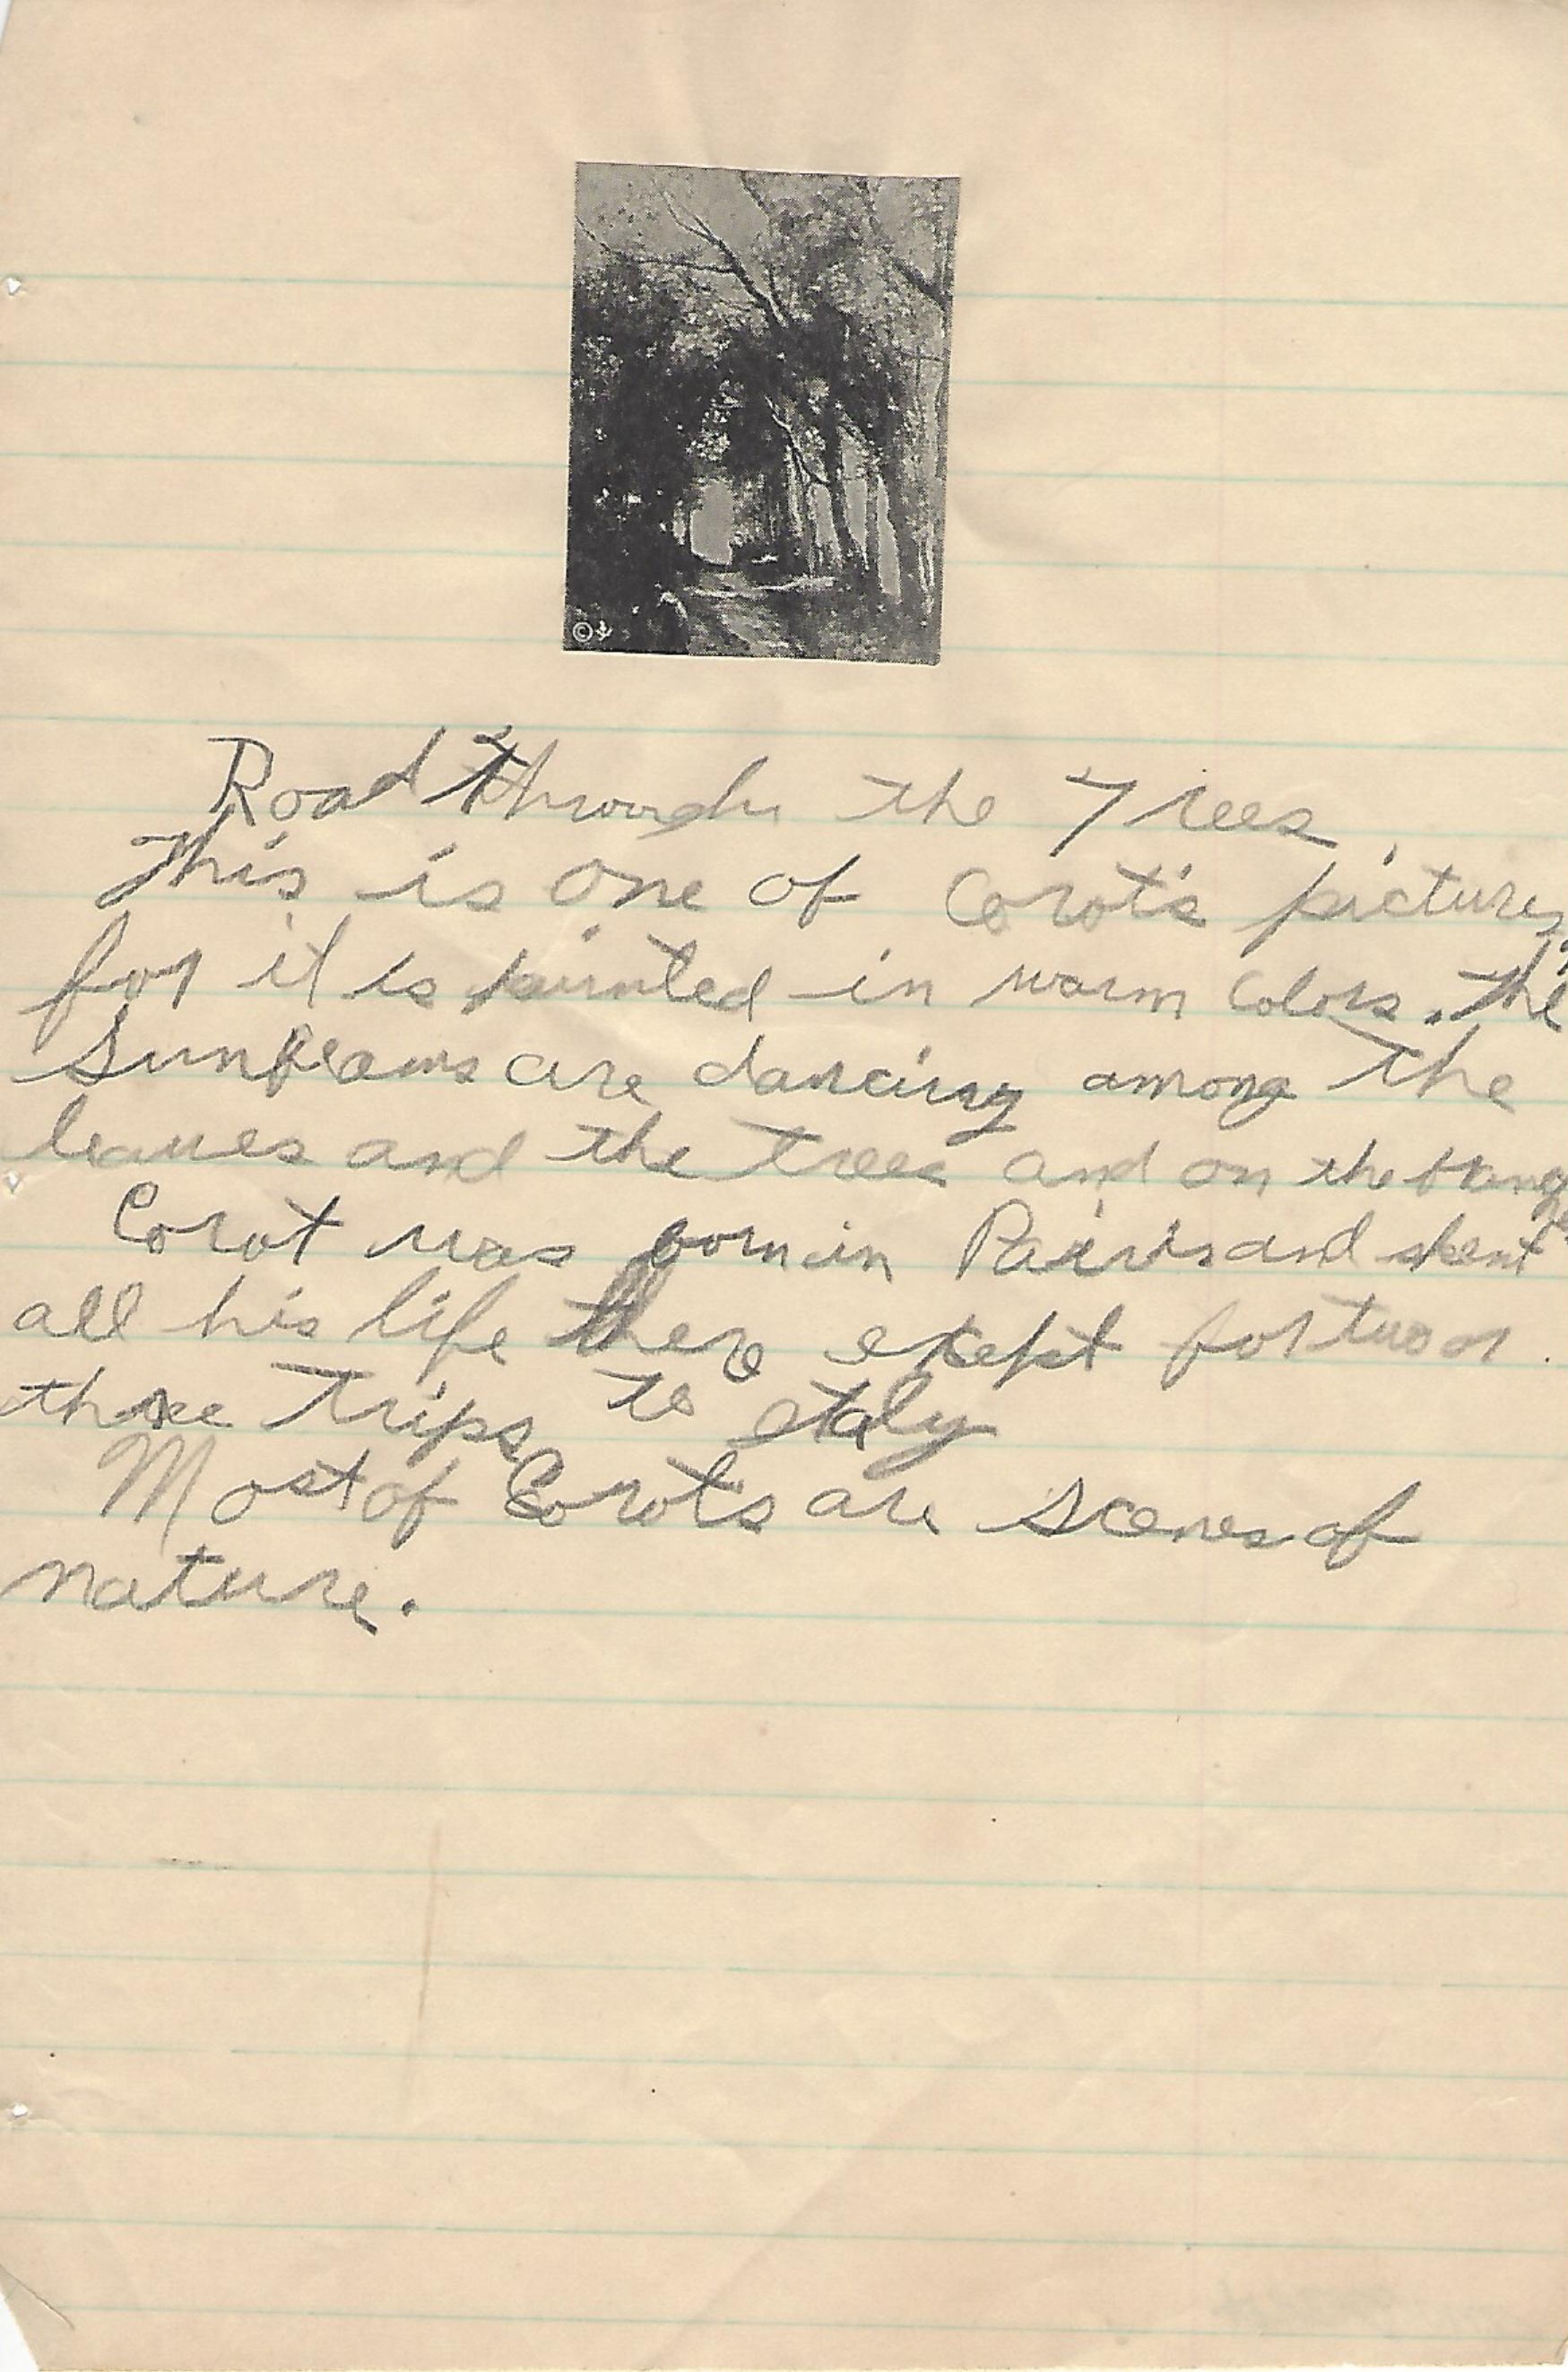 ©
Road Through the Trees
This is one of Corot's pictures,
for it is painted in warm colors. The
Sunbeams are dancing among the
leaves and the trees and on the
Corot was born in Pairis and spent
all his life there exkept for two or
three trips to italy
Most of Corot's are scenes of
nature.